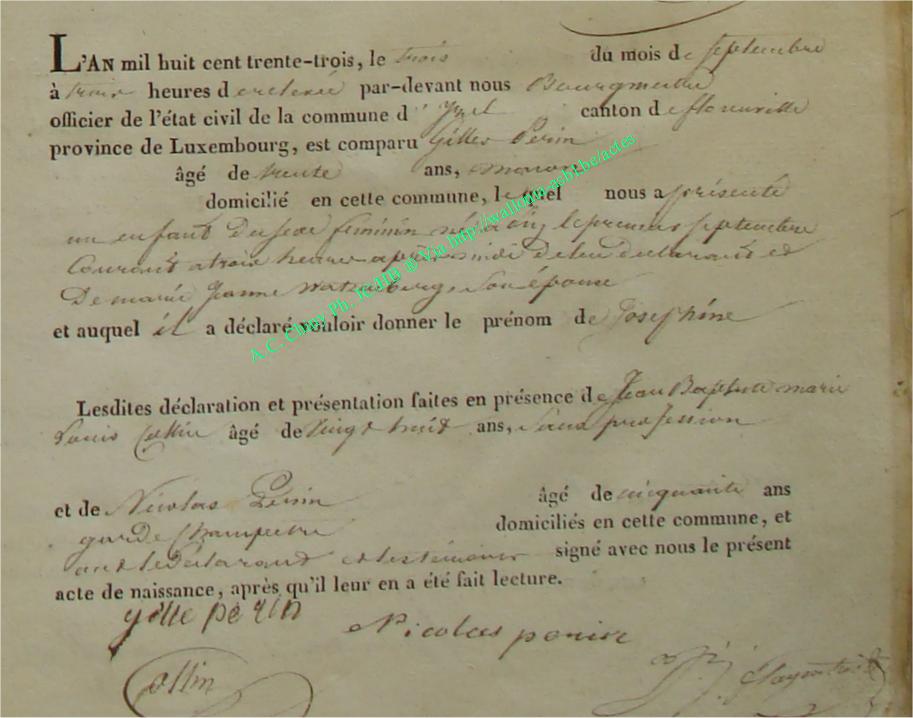 L'AN mil huit cent trente-trois, le trois du mois de septembre
à trois heures de relevée par-devant nous Bourgmestre
officier de l'état civil de la commune d' Izel canton de florenville
province de Luxembourg, est comparu Gilles Perin
âgé de trente ans, maçon
domicilié en cette commune, lequel nous a présenté
un enfant du sexe féminin né à le premier septembre
Courant a trois heures après midi de lui déclarant et
De marie Jeanne son épouse
et auquel il a déclaré vouloir donner le prénom de Joséphine
Lesdites déclaration et présentation faites en présence de Jean Baptiste marie
Louis Collin âgé de vingt huit ans, Sans profession
et de Nicolas Perin âgé de cinquante ans
garde Champetre domiciliés en cette commune, et
ont le Déclarant et les témoins signé avec nous le présent
acte de naissance, après qu'il leur en a été fait lecture.
gille perin
Nicolas perin
Collin
A.C. Chiny Ph. Jc JHB ® Via http://wallonia-asbl.be/actes